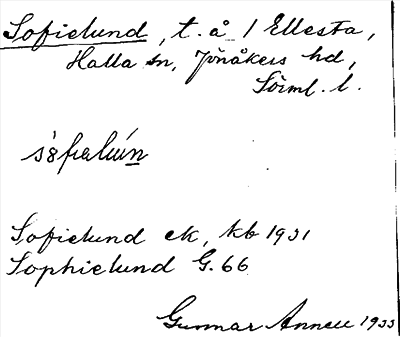 Sofielund, t. å / Ellesta,
Halla sn, Jönåkers hd,
Sörml. l.
Sofielund ek, kb 1931
Sophielund G. 66
Gunnar Annell 1933